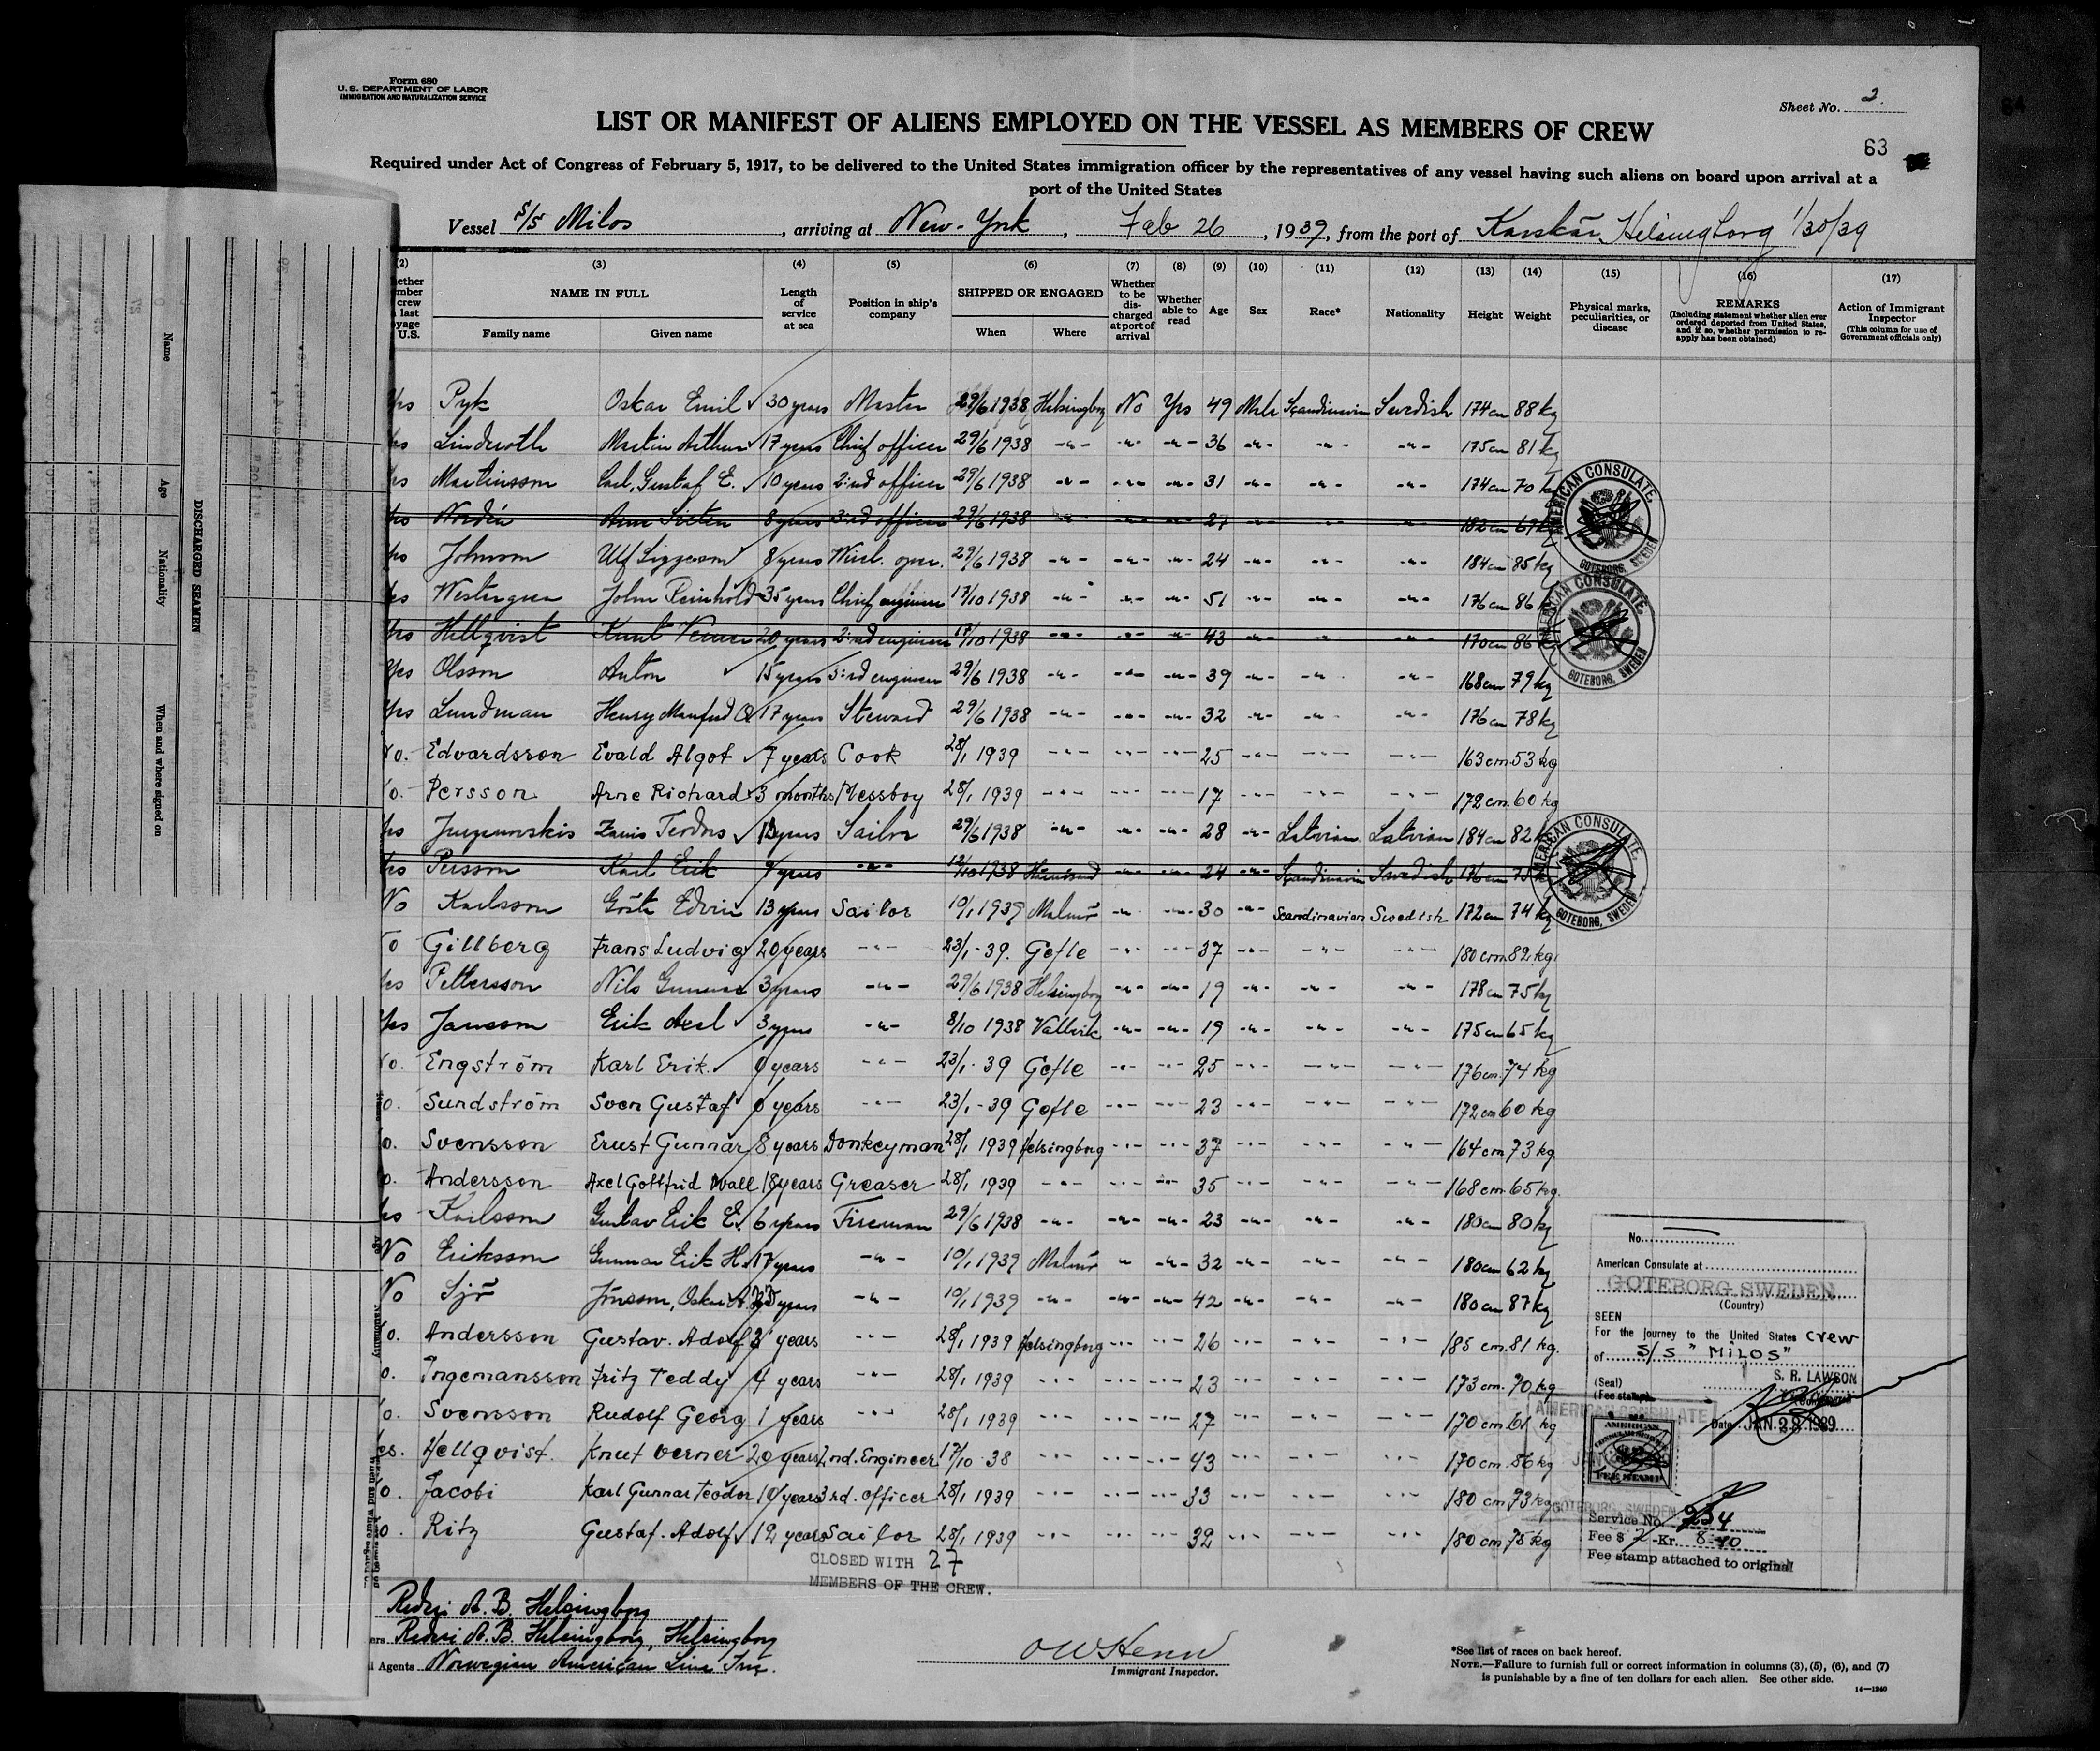 Form 680
U. S. DEPARTMENT OF LABOR
IMMIGRATION AND NATURALIZATION SERVICE
Sheet No. 2.
LIST OR MANIFEST OF ALIENS EMPLOYED ON THE VESSEL AS MEMBERS OF CREW
63
Required under Act of Congress of February 5, 1917, to be delivered to the United States immigration officer by the representatives of any vessel having such aliens on board upon arrival at a
port of the United States
Vessel S/S Milos, arriving at New-York, Feb 26, 1939, from the port of Karskär, Helsingborg 1/30/39
(2) (3) (4) (5) (6) (7) (8) (9) (10) (11) (12) (13) (14) (15) (16) (17)
NAME IN FULL Family name Given name Length of service at sea Position in ship's company SHIPPED OR ENGAGED When Where Whether to be discharged at port of arrival Whether able to read Age Sex Race* Nationality Height Weight Physical marks, peculiarities, or disease REMARKS (Including statement whether alien ever ordered deported from United States, and if so, whether permission to reapply has been obtained) Action of Immigrant Inspector (This column for use of Government officials only)
Yes Pyk Oskar Emil 30 years Master 29/6 1938 Helsingborg No Yes 49 Male Scandinavian Swedish 174 cm 88 kg
Linderoth Martin Arthur 17 years Chief officer 29/6 1938 -"- -"- -"- 36 -"- -"- -"- 175 cm 81 kg
Martinsson Carl, Gustaf E. 10 years 2:nd officer 29/6 1938 -"- -"- -"- 31 -"- -"- -"- 174 cm 70 kg
Nordin 8 years 3:rd officer 29/6 1938 -"- -"- -"- 27 -"- -"- -"- 182 cm
Johnson Ulf 8 years Wirel. oper. 29/6 1938 -"- -"- -"- 24 -"- -"- -"- 184 cm 85 kg
Westergren John Reinhold 35 years Chief engineer 17/10 1938 -"- -"- -"- 51 -"- -"- -"- 176 cm 86
Hellqvist Knut Verner 20 years 2:nd engineer 17/10 1938 -"- -"- -"- 43 -"- -"- -"- 170 cm 86
Yes Olsson Anton 15 years 3:rd engineer 29/6 1938 -"- -"- -"- 39 -"- -"- -"- 168 cm 79 kg
Yes Lundman Henry Manfred O. 17 years Steward 29/6 1938 -"- -"- -"- 32 -"- -"- -"- 176 cm 78 kg
Edvardsson Evald Algot 7 years Cook 28/1 1939 -"- -"- -"- 25 -"- -"- -"- 163 cm 53 kg
Persson Arne Richard 3 months Messboy 28/1 1939 -"- -"- -"- 17 -"- -"- -"- 172 cm 60 kg
Teodors years Sailor 29/6 1938 -"- -"- -"- 28 -"- Latvian Latvian 184 cm 82
Persson Karl Erik years -"- 12/10 1938 -"- -"- 24 -"- Scandinavian Swedish 176 cm
No Karlsson Gösta Edvin 13 years Sailor 10/1 1939 Malmö -"- -"- 30 -"- Scandinavian Swedish 172 cm 74 kg
Gillberg Frans Ludvig 20 years -"- 23/1 -39. Gefle -"- -"- 37 -"- -"- -"- 180 cm 82 kg
Pettersson Nils Gunnar 3 years -"- 29/6 1938 Helsingborg -"- -"- 19 -"- -"- -"- 178 cm 75 kg
Yes Jansson Erik Axel 3 years -"- 8/10 1938 Vallvik -"- -"- 19 -"- -"- -"- 175 cm 65 kg
Engström Karl Erik years -"- 23/1 -39 Gefle -"- -"- 25 -"- -"- -"- 176 cm 74 kg
Sundström Sven Gustaf years -"- 23/1 -39 Gefle -"- -"- 23 -"- -"- -"- 172 cm 60 kg
Svensson Ernst Gunnar 8 years Donkeyman 28/1 1939 Helsingborg -"- -"- 37 -"- -"- -"- 164 cm 73 kg
Andersson Axel Gottfrid Wall 18 years Greaser 28/1 1939 -"- -"- -"- 35 -"- -"- -"- 168 cm 65 kg.
Karlsson Gustav Erik E. 6 years Fireman 29/6 1938 -"- -"- -"- 23 -"- -"- -"- 180 cm 80 kg
No Eriksson Gunnar Erik H. 17 years -"- 10/1 1939 Malmö " -"- 32 -"- -"- -"- 180 cm 62 kg
No Sjö Jönsson, Oskar A. years -"- 10/1 1939 -"- -"- -"- 42 -"- -"- -"- 180 cm 87 kg
Andersson Gustav. Adolf years -"- 28/1 1939 Helsingborg -"- -"- 26 -"- -"- -"- 185 cm. 81 kg.
Ingemansson Fritz Teddy 4 years -"- 28/1 1939 -"- -"- -"- 23 -"- -"- -"- 173 cm. 70 kg
Svensson Rudolf Georg 1 years -"- 28/1 1939 -"- -"- -"- 27 -"- -"- -"- 170 cm 61 kg
Hellqvist. Knut Verner 20 years 2nd. Engineer 17/10 -38 -"- -"- -"- 43 -"- -"- -"- 170 cm. 86 kg
Jacobi Karl Gunnar Teodor 10 years 3rd. officer 28/1 1939 -"- -"- -"- 33 -"- -"- -"- 180 cm 73 kg
Ritz Gustaf. Adolf 12 years Sailor 28/1 1939 -"- -"- -"- 32 -"- -"- -"- 180 cm 75 kg
CLOSED WITH 27
MEMBERS OF THE CREW.
AMERICAN CONSULATE
GOTEBORG, SWEDEN
AMERICAN CONSULATE
GOTEBORG, SWEDEN
AMERICAN CONSULATE
GOTEBORG, SWEDEN
No.
American Consulate at
GOTEBORG, SWEDEN
(Country)
SEEN
For the journey to the United States crew
of S/S "MILOS"
(Seal) S. R. LAWSON
(Fee stamp)
Date JAN 28 1939
AMERICAN CONSULATE
AMERICAN
FEE STAMP
GOTEBORG, SWEDEN
Service No. 254
Fee $ 2 -Kr. 8.40
Fee stamp attached to original
Rederi A. B. Helsingborg
Rederi A.B. Helsingborg, Helsingborg
Agents Norwegian American Line Inc.
Immigrant Inspector.
*See list of races on back hereof.
NOTE.—Failure to furnish full or correct information in columns (3), (5), (6), and (7)
is punishable by a fine of ten dollars for each alien. See other side.
14—1240
DISCHARGED SEAMEN
Name
Age
Nationality
When and where signed on